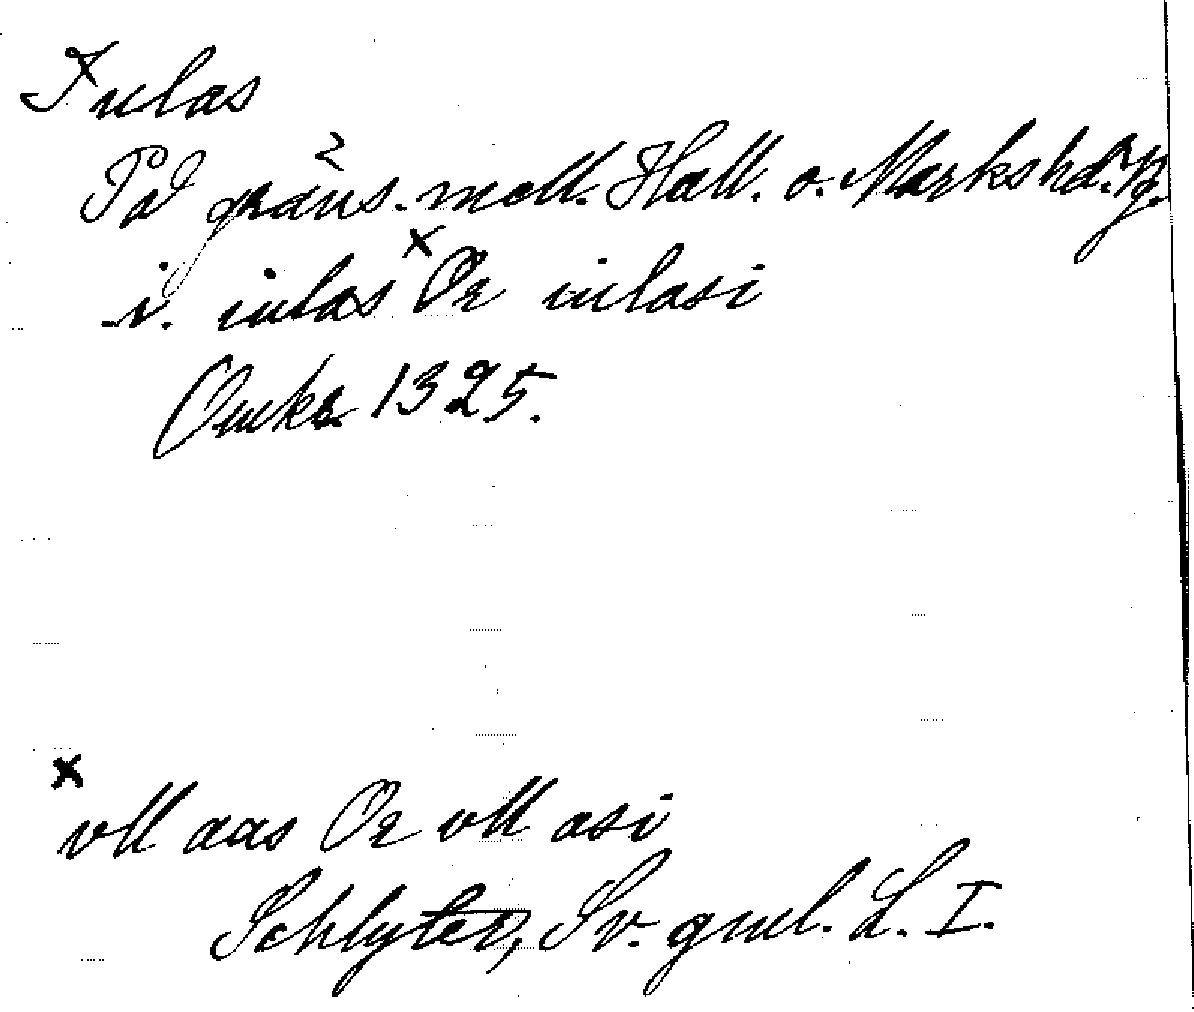 x
Iulas
På gräns. mell. Hall. o. Markshd. Vg.
i. iulas x Or iulasi
Omkr. 1325.
x
vll aas Or vll asi
Schlyter, Sv. gml. L. I.